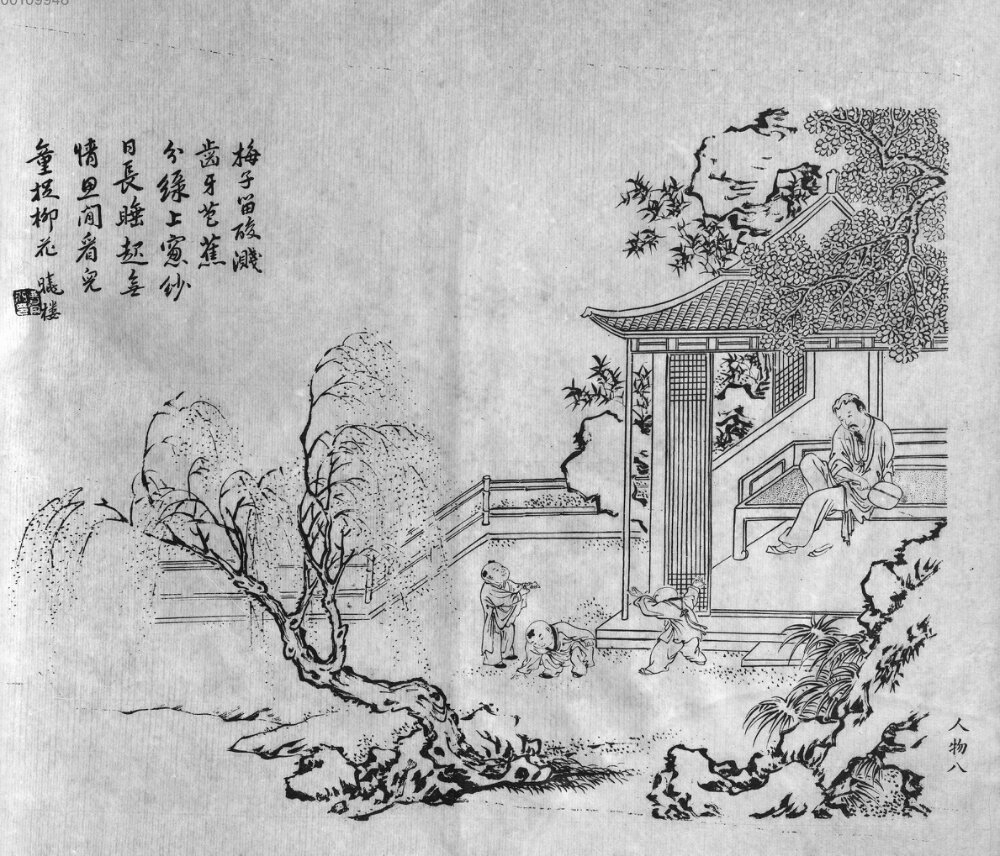 梅子留酸濺
齒牙芭蕉
分綠上窓紗
日長睡起無
情思閒看兒
童捉柳花 曉樓
人物八